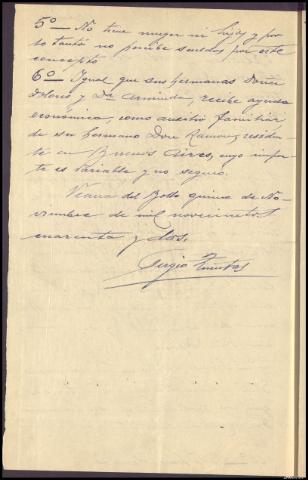 5º No tiene mujer ni hijos y por
lo tanto no percibe sueldos por este
concepto
6º Igual que sus hermanas Doña
y Dª Arminda, recibe ayuda
económica, como auxilio familiar
de su hermano Don Ramon, residen
te en Buenos Aires, cuyo impor
te es variable y no seguro.
Viana del Bollo quince de No-
viembre de mil novecientos
cuarenta y dos.
Sergio